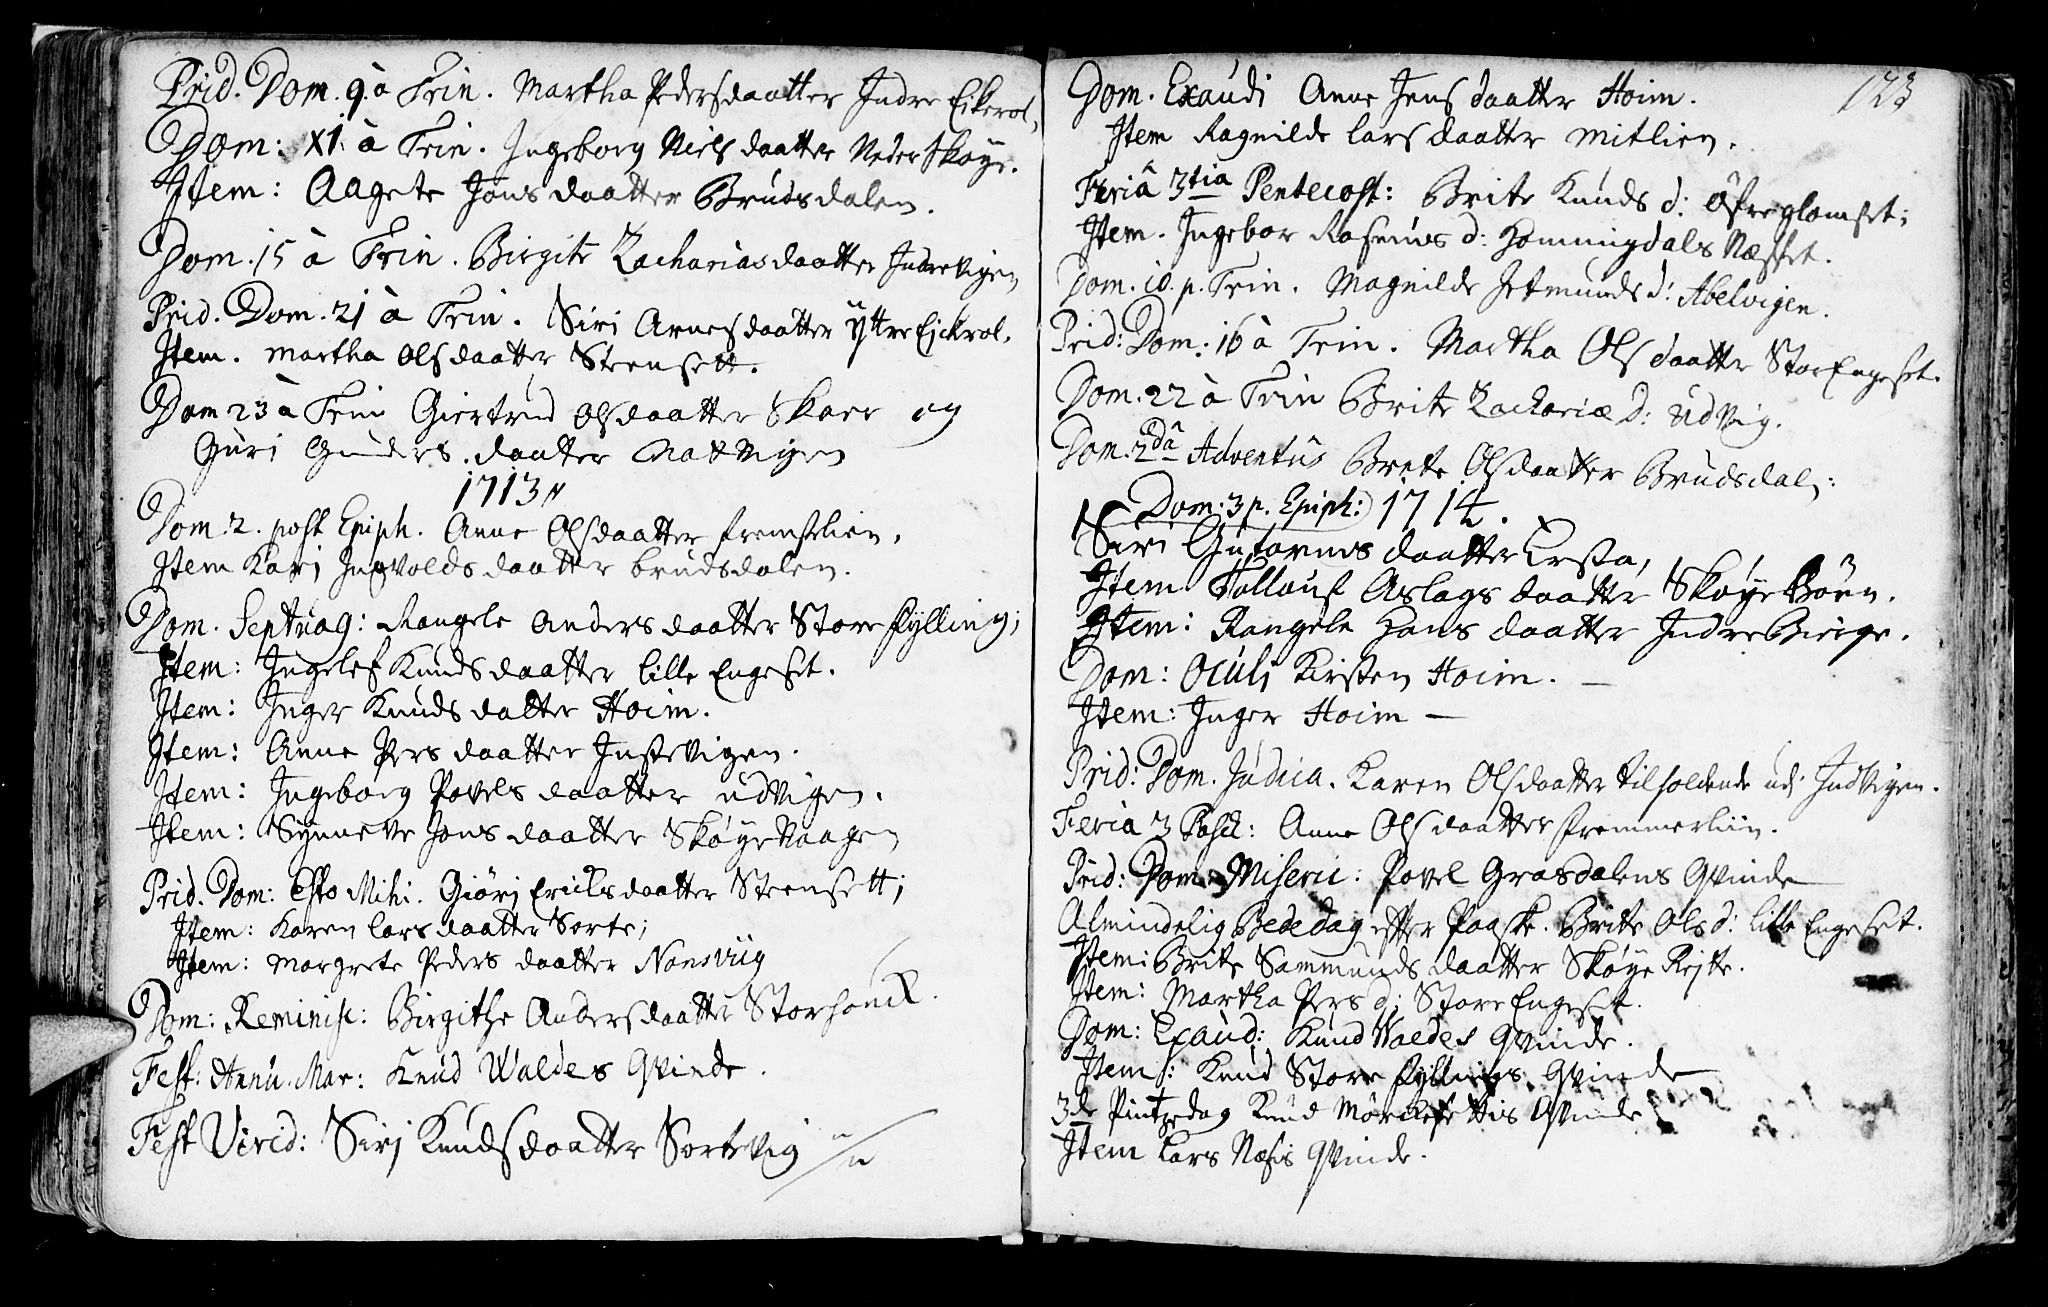 Prid. Dom. 9. à Trin. Martha Pedersdaatter Indre Eikerol,
Dom: XI. à Trin. Ingeborg Niels daatter Neder Skøye.
Item: Aagete Jons daatter Brudsdalen.
Dom. 15 à Trin. Birgite Zacharias daatter Indrevigen,
Prid. Dom. 21 à Trin. Siri Arnesdaatter Yttre Eickrol.
Item. Martha Olsdaatter Steensett.
Dom 23 à Trin Giertrud Olsdaatter Skaar og
Guri Gunders daatter Mattvigen
1713
Dom. 2. post Epiph. Anne Olsdaatter fremstelien.
Item Kari Ingvolds daatter brudsdalen.
Dom. Septuag: Rangele Anders daatter Store fylling;
Item: Ingelef Knuds daatter lille Engeset.
Item: Inger Knuds datter Hoim.
Item: Anne Pers daatter Instevigen.
Item: Ingeborg Povels daatter udvigen.
Item: Synneve Jons daatter Skøye Haagen
Prid. Dom: Esto Mihi. Giøri Erichsdaatter Steensett;
Item: Karen Lars daatter Sorte;
Item: Margrete Peders daatter Nonsviig
Dom: Reminisc: Birgithe Andersdaatter Storhouck.
Fest: Annu. Mar: Knud Waldes Qvinde.
Fest Virid: Siri Knudsdaatter Sortevig
123
Dom. Exaudi Anne Jens daatter Hoim.
Item Ragnilde Lars daatter Mitlien.
Feriâ 3tia Pentecost: Brite Knuds d: Øfre glomset;
Item. Ingebor Rasmus d: Hommingdals Næsset.
Dom. 10. p. Trin. Magnilde Jetmunds d: Abelvigen.
Prid: Dom. 16 à Trin. Martha Olsdaatter Stor Engeset.
Dom. 22 à Trin Brite Zachariæ D: Udvig.
Dom. 2dâ Adventus Brite Olsdaatter Brudsdal:
Dom: 3 p. Epiph: 1714.
Siri Gutormsdaatter Ersta,
Item Aslags daatter Skøye Børn.
Item: Rangele Hans daatter Indre Bierge.
Dom: Oculi Kirsten Hoim. —
Item: Inger Hoim —
Prid: Dom. Judica. Karen Olsdaatter tilholdende udi Indvigen.
Feria 3 Pasch: Anne Olsdaatter fremmerliin.
Prid: Dom. Miseric: Povel Grasdalens Qvinde
Almindelig Bededag efter Paaske. Brite Olsd: lille Engeset.
Item: Brite Sammunds daatter Skøye Rejtte.
Item: Martha Pers d: Store Engeset.
Dom: Exaud: Knud Waldes Qvinde.
Item: Knud Store fyllings Qvinde
3de Pintzedag Knud Qvinde
Item Lars Næsis Qvinde.